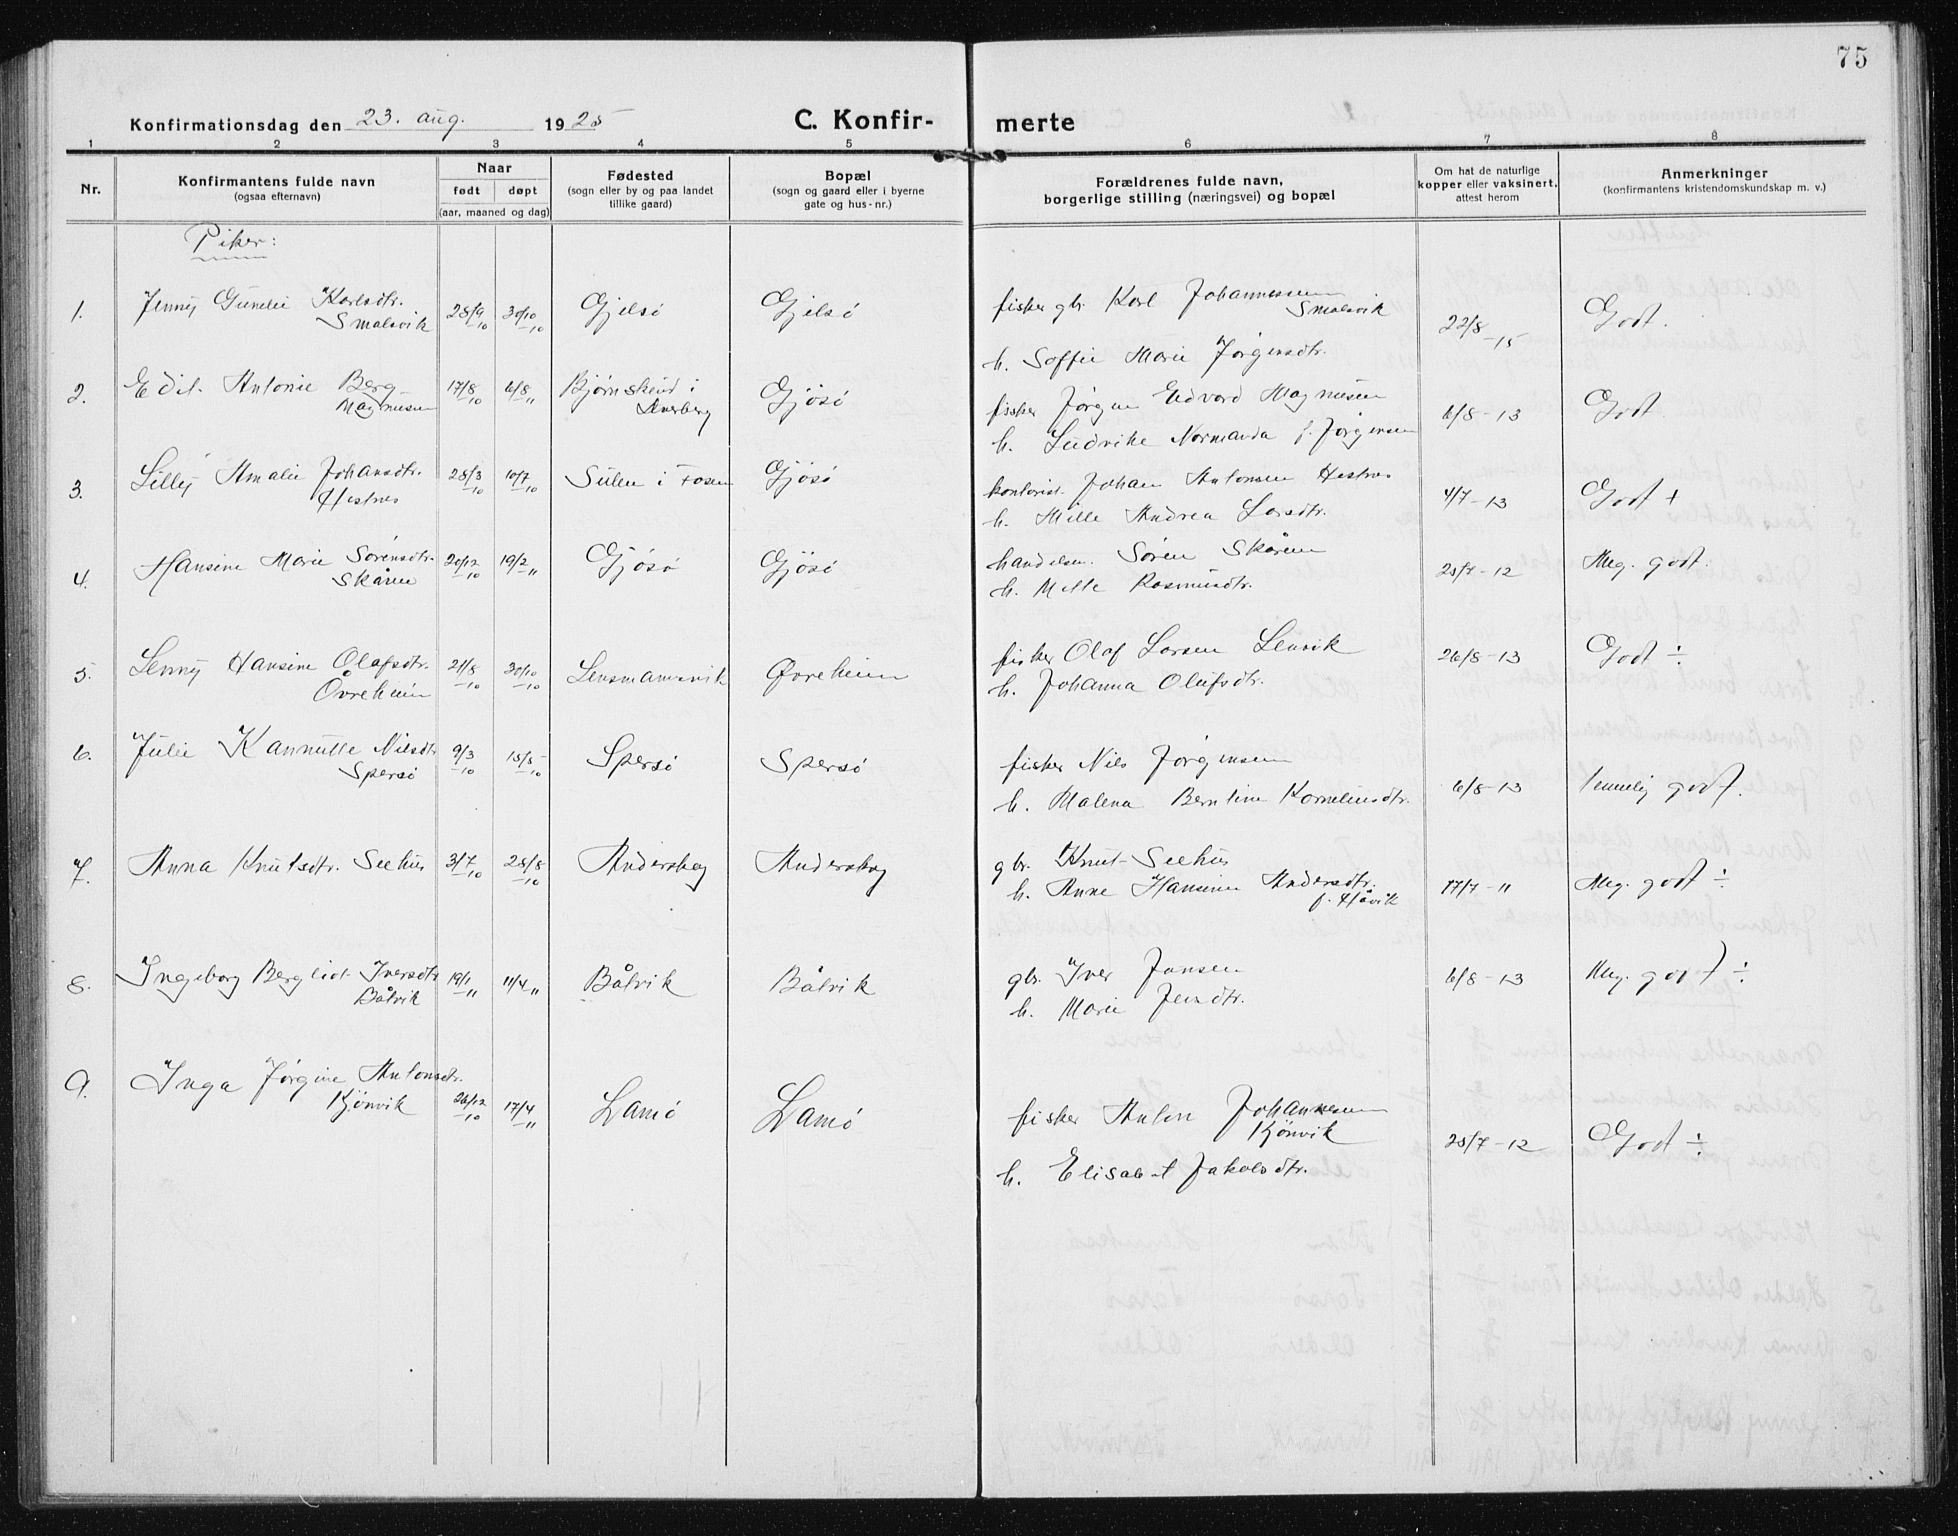 75
Konfirmationsdag den 23. aug. 1925
C. Konfir- merte
1 2 3 4 5 6 7 8
Nr.
Konfirmantens fulde navn
(ogsaa efternavn)
Naar
født døpt
(aar, maaned og dag)
Fødested
(sogn eller by og paa landet
tillike gaard)
Bopæl
(sogn og gaard eller i byerne
gate og hus-nr.)
Forældrenes fulde navn,
borgerlige stilling (næringsvei) og bopæl
Om hat de naturlige
kopper eller vaksinert,
attest herom
Anmerkninger
(konfirmantens kristendomskundskap m. v.)
Piker:
1. Jenny Karlsdtr. 28/9 30/10 Gjelsö Gjelsö fisker gbr. Karl Johannessen
Smalsvik -10 -10 Smalsvik 22/8 -15 Godt.
h. Soffie Marie Jørgensdtr.
2. Edit Antonie Berg 17/8 6/8 Bjørnskind i Gjösö fisker Jørgen Edvard Magnusen 6/8-13 Godt
Magnusen -10 " h. Ludvike Normanda f. Jørgensen
3. Lilly Amalie Johansdtr. 28/3 10/7 Sulen i Fosen Gjösö kontorist Johan Antonsen Hestnes 4/7-13 Godt +
Hestnes -10 -10 h. Mille Andrea Larsdtr.
4. Hansine Marie Sørensdtr. 20/12 19/2 Gjösö Gjösö handelsm. Sören Skåren 25/7-12 Meg. godt.
Skåren -10 " h. Mette Rasmusdtr.
5. Jenny Hansine Olafsdtr. 21/8 30/10 Lensmansvik Øvreheim fisker Olaf Larsen Lenvik 26/8-13 Godt ÷
Övreheim -10 -10 h. Johanna Olufsdtr.
6. Julie Kannutte Nilsdtr. 9/3 15/5 Spersö Spersö fisker Nils Jørgensen
Spersö -10 -10 h. Malena Berntine Korneliusdtr. 6/8-13 temelig godt.
7. Anna Knutsdtr. Seehus 31/7 28/8 Anderskog Anderskog gbr. Knut Seehus
-10 -10 h. Anne Hansine Andersdtr. 17/7-11 Meg. godt ÷
f. Håvik
8. Ingeborg Bergliot Iversdtr. 19/1 11/4 Båtvik Båtvik gbr. Iver Jansen 6/8-13 Meg. godt ÷
Båtvik " " h. Marie Jensdtr.
9. Inga Jørgine Antonsdtr.
Kjönvik 26/12 17/4 Lamö Lamö fisker Anton Johannesen
-10 " Kjönvik 25/7-12 Godt ÷
h. Elisabet Jakobsdtr.